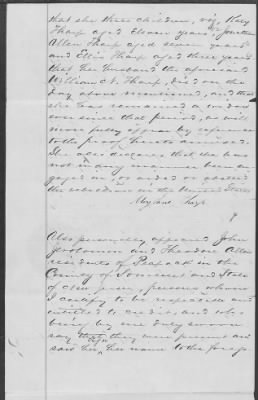 that she three children, viz, Mary
Tharp aged Eleven years, Jonathan
Allen Tharp aged seven years
and Ellis Tharp aged three years
that her husband the aforesaid
William N. Tharp, died on the
day above mentioned, and that
she has remained a widow
ever since that period, as will
more fully appear by reference
to the proof hereto annexed.
She also declares that she has
not in any manner been en
gaged in, or aided or abetted
the rebellion in the United States
Also personally appeared John
and Theodore Allen
residents of Peapack in the
County of Somerset and State
of New Jersey, persons whom
I certify to be respectable and
entitled to credit, and who
being by me duly sworn
say that they were present and
saw her sign her name to the foreg-